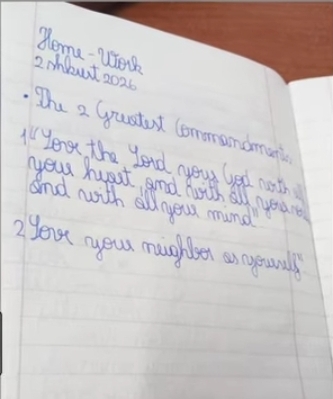 Home - Work
2 shkurt 2026
• The 2 Greatest Commandments
1 "Love the Lord your God with all
your heart, and with all your soul
and with all your mind"
2 Love your neighbor as yourself"